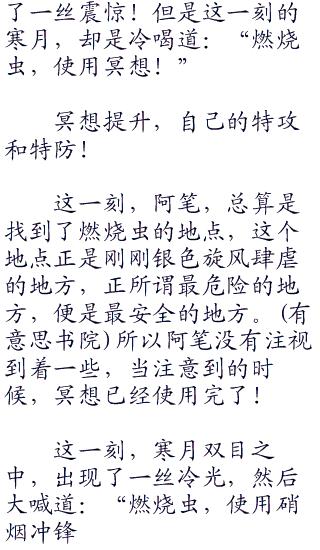 了一丝震惊！但是这一刻的
寒月，却是冷喝道：“燃烧
虫，使用冥想！”
冥想提升，自己的特攻
和特防！
这一刻，阿笔，总算是
找到了燃烧虫的地点，这个
地点正是刚刚银色旋风肆虐
的地方，正所谓最危险的地
方，便是最安全的地方。(有
意思书院)所以阿笔没有注视
到着一些，当注意到的时
候，冥想已经使用完了！
这一刻，寒月双目之
中，出现了一丝冷光，然后
大喊道：“燃烧虫，使用硝
烟冲锋